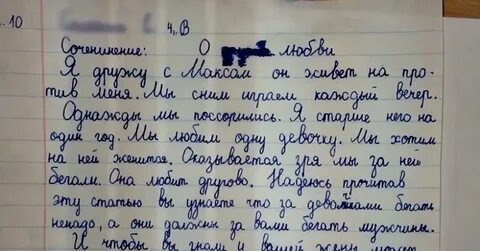 10
4 „В
Соченинение: О любви
Я дружу с Максам он живет на про-
тив меня. Мы сним играем каждый вечер.
Однажды мы поссорились. Я старше него на
один год. Мы любим одну девочку. Мы хотим
на ней женится. Оказывается зря мы за ней
бегали. Она любит другово. Надеюсь прочитав
эту статью вы узнаете что за девочками бегать
ненадо, а они должны за вами бегать мужчины.
И чтобы вы знали у вашей жены может